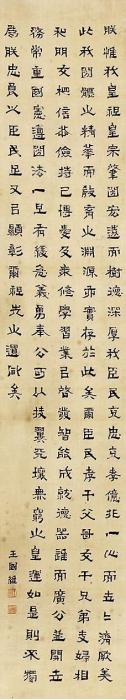 朕惟我皇祖皇宗肇國宏遠而樹德深厚我臣民克忠克孝億兆一心而世世濟厥美
此我國體之精華而教育之淵源亦實存於此矣爾臣民孝于父母友于兄弟夫婦相
和朋友相信恭儉持己博愛及衆修學習業以啓發智能成就德器進而廣公益開世
務常重國憲遵國法一旦有緩急義勇奉公可以扶翼天壤無窮之皇運如是則不獨
為朕忠良之臣民又以顯彰爾祖先之遺風矣
王國維